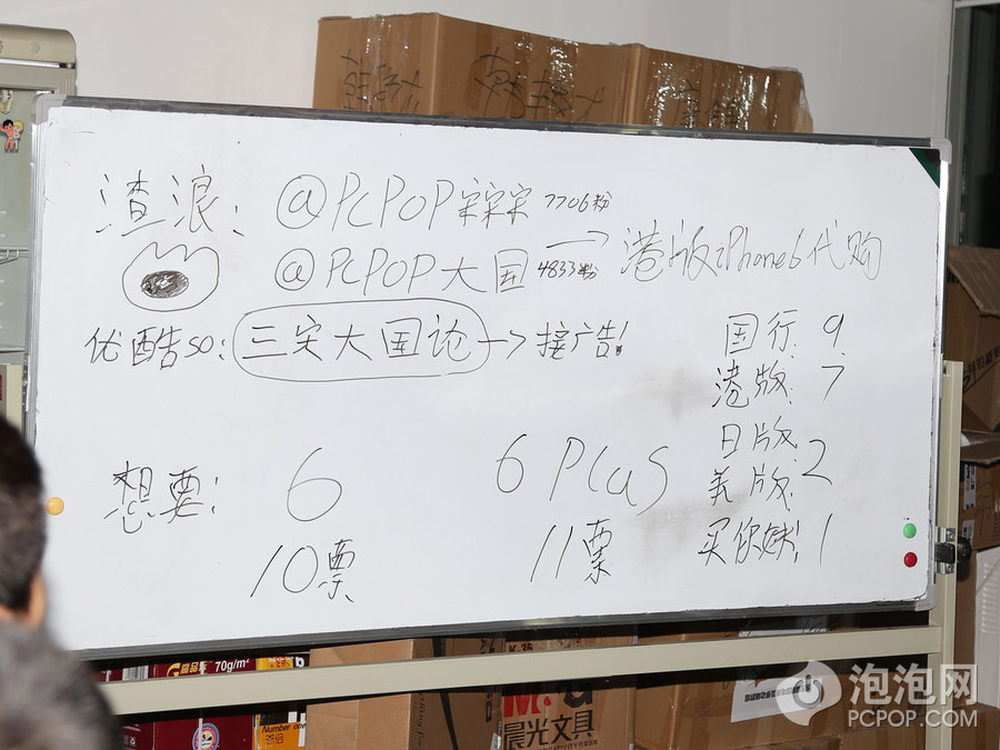 渣浪: @PCPOP宋宋宋 7706粉
@PCPOP大国 4833粉 → 港版iPhone6代购
优酷so: 三宋大国论 → 接广告!
国行: 9
港版: 7
日版:
美版: 2
买你妹: 1
想要: 6 6 Plus
10票 11票
70g/m²
Number one
K-35
晨光文具
泡泡网
PCPOP.COM